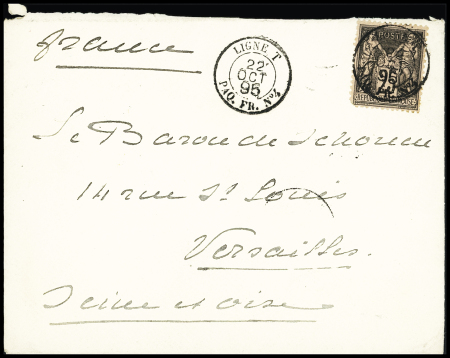 france
LIGNE T
22
OCT
95
PAQ. FR. Nº4
POSTE
95
Le Baron de Schonen
14 rue St Louis
Versailles.
Seine et Oise